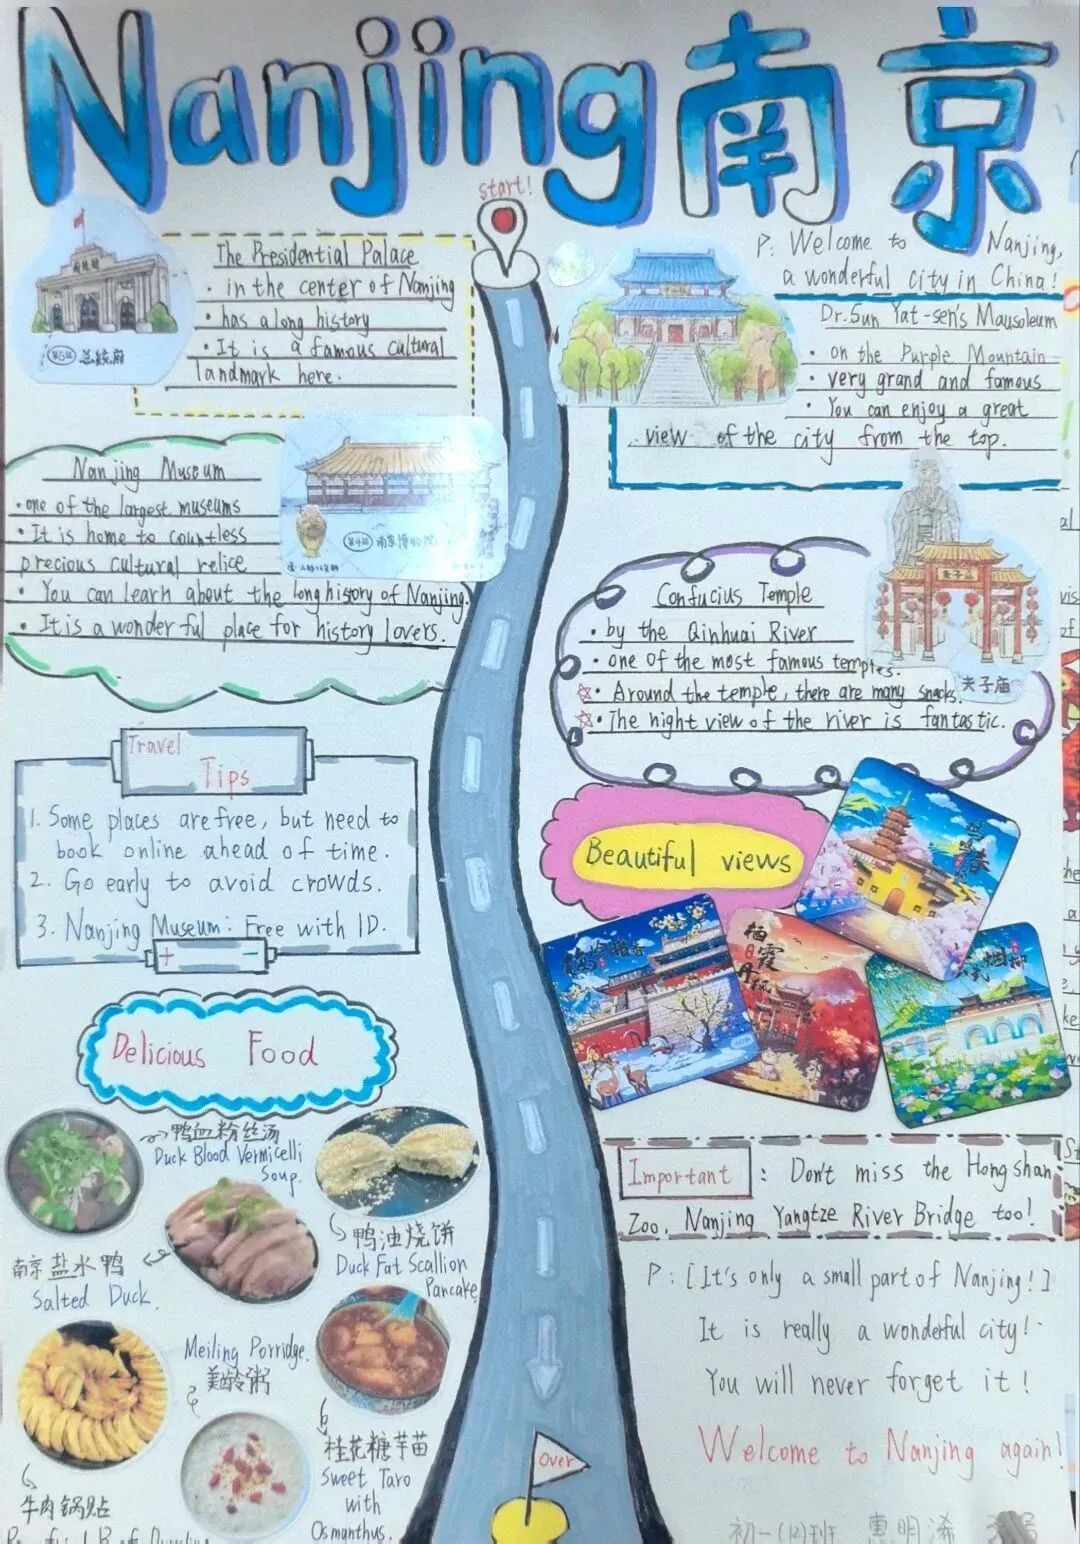 Nanjing南京
start!
The Presidential Palace
· in the center of Nanjing
· has a long history
· It is a famous cultural
landmark here.
第5站 总统府
P: Welcome to Nanjing,
a wonderful city in China!
Dr.Sun Yat-sen's Mausoleum
· on the Purple Mountain
· very grand and famous
· You can enjoy a great
view of the city from the top.
Nanjing Museum
· one of the largest museums
· It is home to countless
precious cultural relice
· You can learn about the long history of Nanjing.
· It is a wonderful place for history lovers.
第4站 南京博物院
Confucius Temple
· by the Qinhuai River
· one of the most famous temples.
☆· Around the temple, there are many snacks.
☆· The night view of the river is fantastic.
夫子庙
夫子庙
Travel
Tips
1. Some places are free, but need to
book online ahead of time.
2. Go early to avoid crowds.
3. Nanjing Museum: Free with ID.
+ -
Beautiful views
鸡鸣春
栖霞丹枫
Delicious Food
鸭血粉丝汤
Duck Blood Vermicelli
Soup.
南京盐水鸭
Salted Duck.
鸭油烧饼
Duck Fat Scallion
Pancake
Meiling Porridge.
美龄粥
桂花糖芋苗
Sweet Taro
with
Osmanthus.
牛肉锅贴
Important : Don't miss the Hongshan
Zoo, Nanjing Yangtze River Bridge too!
P: [It's only a small part of Nanjing!]
It is really a wonderful city!
You will never forget it!
Welcome to Nanjing again!
Over
初一(12)班 惠明浠